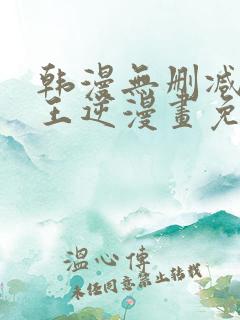 韩漫無删减
王逆漫畫免
温心傳
未经同意禁止转载